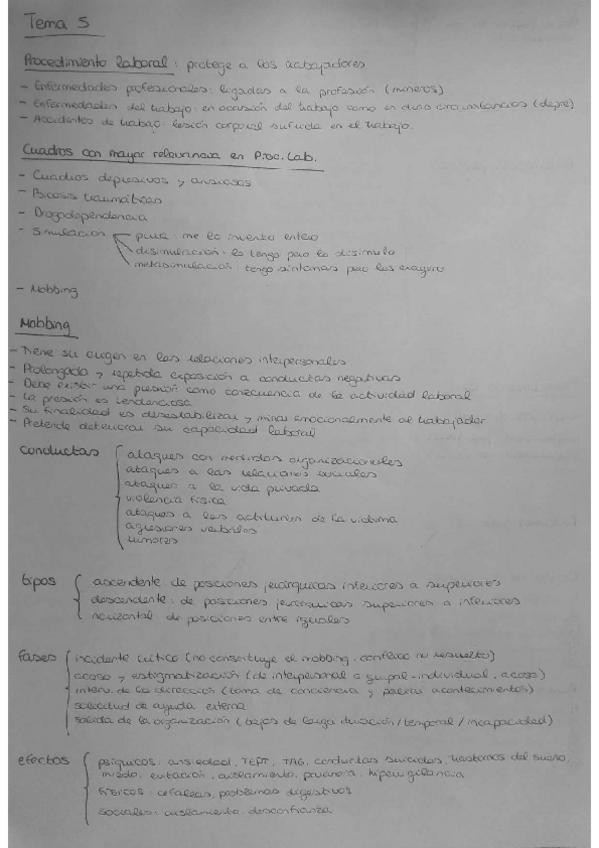 Tema 5
Procedimiento laboral: protege a los trabajadores
- Enfermedades profesionales: ligadas a la profesión (mineros)
- Enfermedades del trabajo: en ocasión del trabajo como en otras circunstancias (depre)
- Accidentes de trabajo: lesión corporal sufrida en el trabajo.
Cuadros con mayor relevancia en Proc. Lab.
- Cuadros depresivos y ansiosos
- Psicosis traumáticas
- Drogodependencia
- Simulación pura: me lo invento entero
disimulación: lo tengo pero lo disimulo
metasimulación: tengo síntomas pero los exagero
- Mobbing
Mobbing
- Tiene su origen en las relaciones interpersonales
- Prolongada y repetida exposición a conductas negativas
- Debe existir una presión como consecuencia de la actividad laboral
- La presión es tendenciosa
- Su finalidad es desestabilizar y minar emocionalmente al trabajador
- Pretende deteriorar su capacidad laboral
conductas ataques con medidas organizacionales
ataques a las relaciones sociales
ataques a la vida privada
violencia física
ataques a las actitudes de la víctima
agresiones verbales
rumores
tipos ascendente: de posiciones jerárquicas inferiores a superiores
descendente: de posiciones jerárquicas superiores a inferiores
horizontal: de posiciones entre iguales
fases incidente crítico (no constituye el mobbing, conflicto no resuelto)
acoso y estigmatización (de interpersonal a grupal-individual, acoso)
interv. de la dirección (toma de conciencia y acontecimientos)
solicitud de ayuda externa
salida de la organización (bajas de larga duración/temporal/incapacidad)
efectos psíquicos: ansiedad, TEPT, TAG, conductas suicidas, trastornos del sueño,
miedo, evitación, aislamiento, paranoia, hipervigilancia
físicos: cefaleas, problemas digestivos
sociales: aislamiento, desconfianza